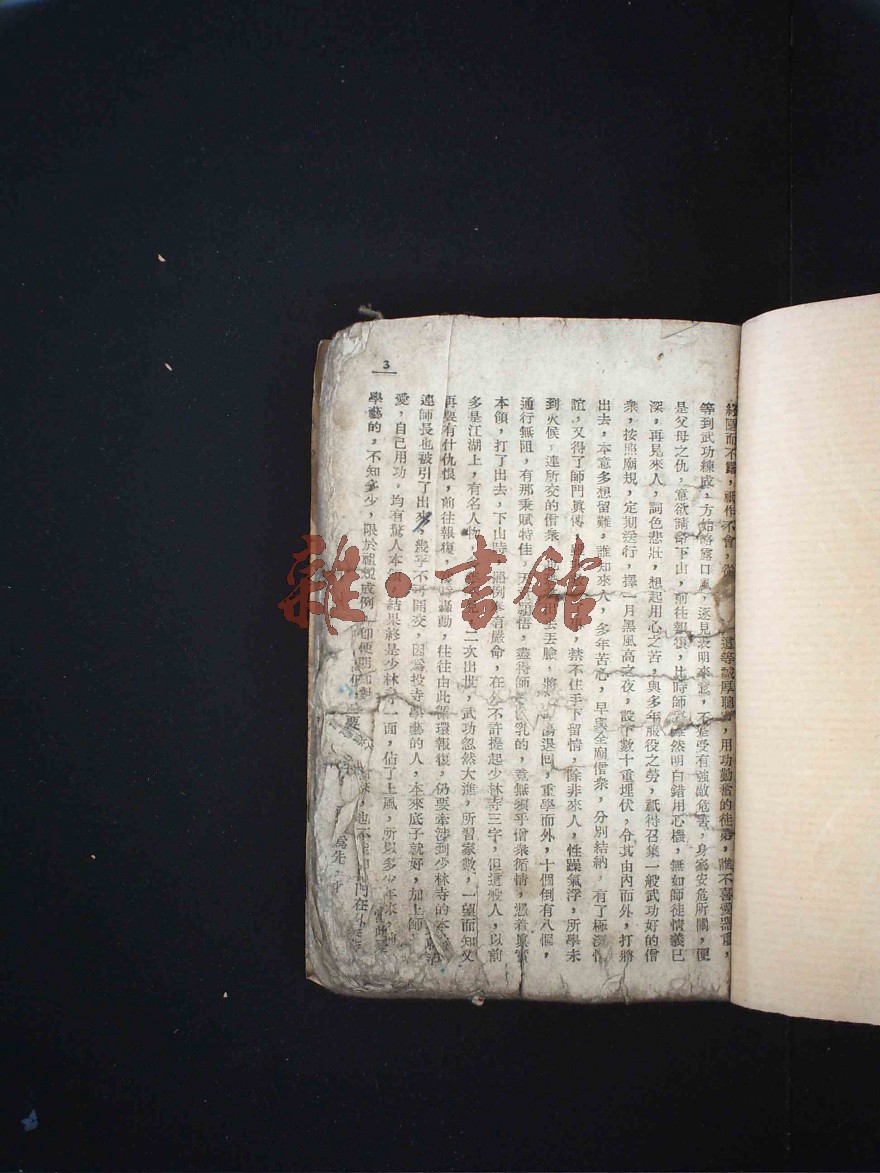 3
終隱而不露，祇作不會，
這等誠厚聰
，用功勤奮的徒弟，
不喜愛器重，
等到武功練成，方始略露口風，逐見說明來意，不是受有強敵危害，身家安危所關，便
是父母之仇，意欲請命下山，前往報復，比時師
然明白錯用心機，無如師徒情義已
深，再見來人，詞色悲壯，想起用心之苦，與多年服役之勞，祇得召集一般武功好的僧
衆，按照廟規，定期送行，擇一月黑風高之夜，設下數十重埋伏，令其由內而外，打將
出去，本意多想留難，誰知來人，多年苦心，早與全廟僧衆，分別結納，有了極深情
誼，又得了師門眞傳，
禁不住手下留情，除非來人，性躁氣浮，所學未
到火候，連所交的僧衆
出去丟臉，將
退回，重學而外，十個倒有八個，
通行無阻，有那秉賦特佳，天
穎悟，盡得師
乳的，竟無須乎僧衆循情，憑着眞實
本領，打了出去，下山時
例
有嚴命，在外不許提起少林寺三字，但這般人，以前
多是江湖上，有名人物，
二次出世，武功忽然大進，所習家數，一望而知又
再要有什仇恨，前往報復，
轟動，往往由此循環報復，仍要牽涉到少林寺的本
連師長也被引了出來，幾乎不可開交，因爲投寺學藝的人，本來底子就好，加上師
愛，自己用功，均有驚人本領，結果終是少林寺一面，佔了上風，所以多少年來
學藝的，不知多少，限於祖規成例，卽便明知對
要
也不
門在外
爲先，
雜·書館